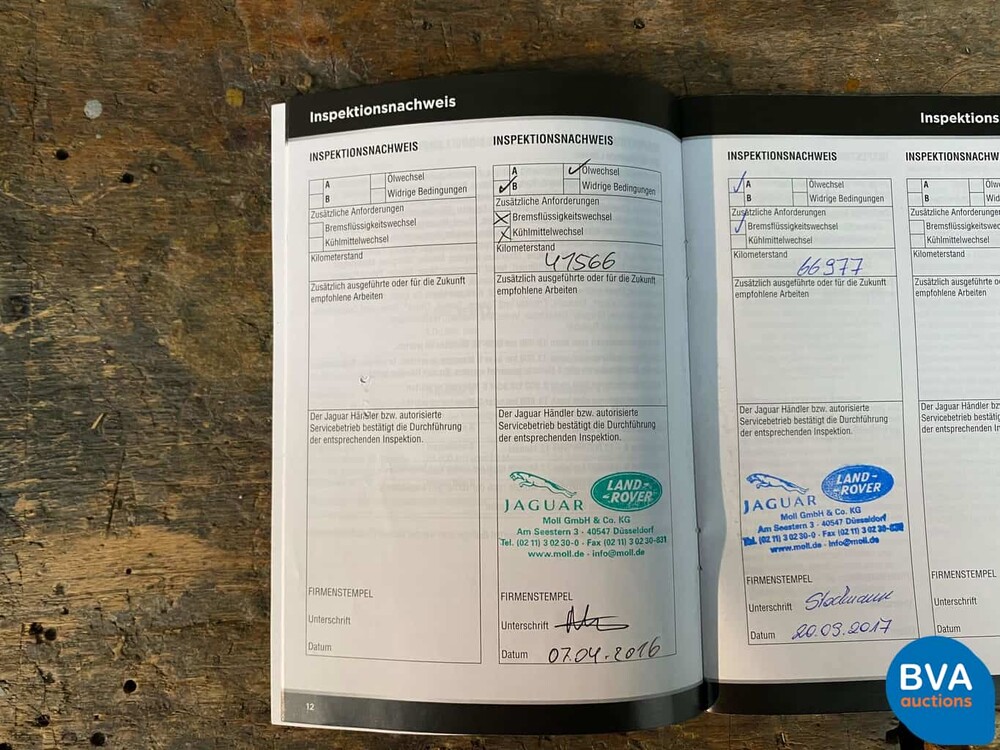 Inspektionsnachweis
INSPEKTIONSNACHWEIS
A
Ölwechsel
B
Widrige Bedingungen
Zusätzliche Anforderungen
Bremsflüssigkeitswechsel
Kühlmittelwechsel
Kilometerstand
Zusätzlich ausgeführte oder für die Zukunft
empfohlene Arbeiten
Der Jaguar Händler bzw. autorisierte
Servicebetrieb bestätigt die Durchführung
der entsprechenden Inspektion.
FIRMENSTEMPEL
Unterschrift
Datum
12
INSPEKTIONSNACHWEIS
A
Ölwechsel
B
Widrige Bedingungen
Zusätzliche Anforderungen
Bremsflüssigkeitswechsel
Kühlmittelwechsel
Kilometerstand
41566
Zusätzlich ausgeführte oder für die Zukunft
empfohlene Arbeiten
Der Jaguar Händler bzw. autorisierte
Servicebetrieb bestätigt die Durchführung
der entsprechenden Inspektion.
JAGUAR
LAND-
-ROVER
Moll GmbH & Co. KG
Am Seestern 3 · 40547 Düsseldorf
Tel. (02 11) 3 02 30-0 - Fax (02 11) 3 02 30-831
www.moll.de - info@moll.de
FIRMENSTEMPEL
Unterschrift
Datum 07.04.2016
Inspektions
INSPEKTIONSNACHWEIS
A
Ölwechsel
B
Widrige Bedingungen
Zusätzliche Anforderungen
Bremsflüssigkeitswechsel
Kühlmittelwechsel
Kilometerstand
66977
Zusätzlich ausgeführte oder für die Zukunft
empfohlene Arbeiten
Der Jaguar Händler bzw. autorisierte
Servicebetrieb bestätigt die Durchführung
der entsprechenden Inspektion.
JAGUAR
LAND-
-ROVER
Moll GmbH & Co. KG
Am Seestern 3 · 40547 Düsseldorf
Tel. (02 11) 3 02 30-0 - Fax (02 11) 3 02 30-831
www.moll.de - info@moll.de
FIRMENSTEMPEL
Unterschrift
Datum 20.09.2017
INSPEKTIONSNACHW
A
Ölw
B
Wid
Zusätzliche Anforderunge
Bremsflüssigkeitswec
Kühlmittelwechsel
Kilometerstand
Zusätzlich ausgeführte o
empfohlene Arbeiten
Der Jaguar Händler bz
Servicebetrieb bestätig
der entsprechenden In
FIRMENSTEMPEL
Unterschrift
Datum
BVA
auctions